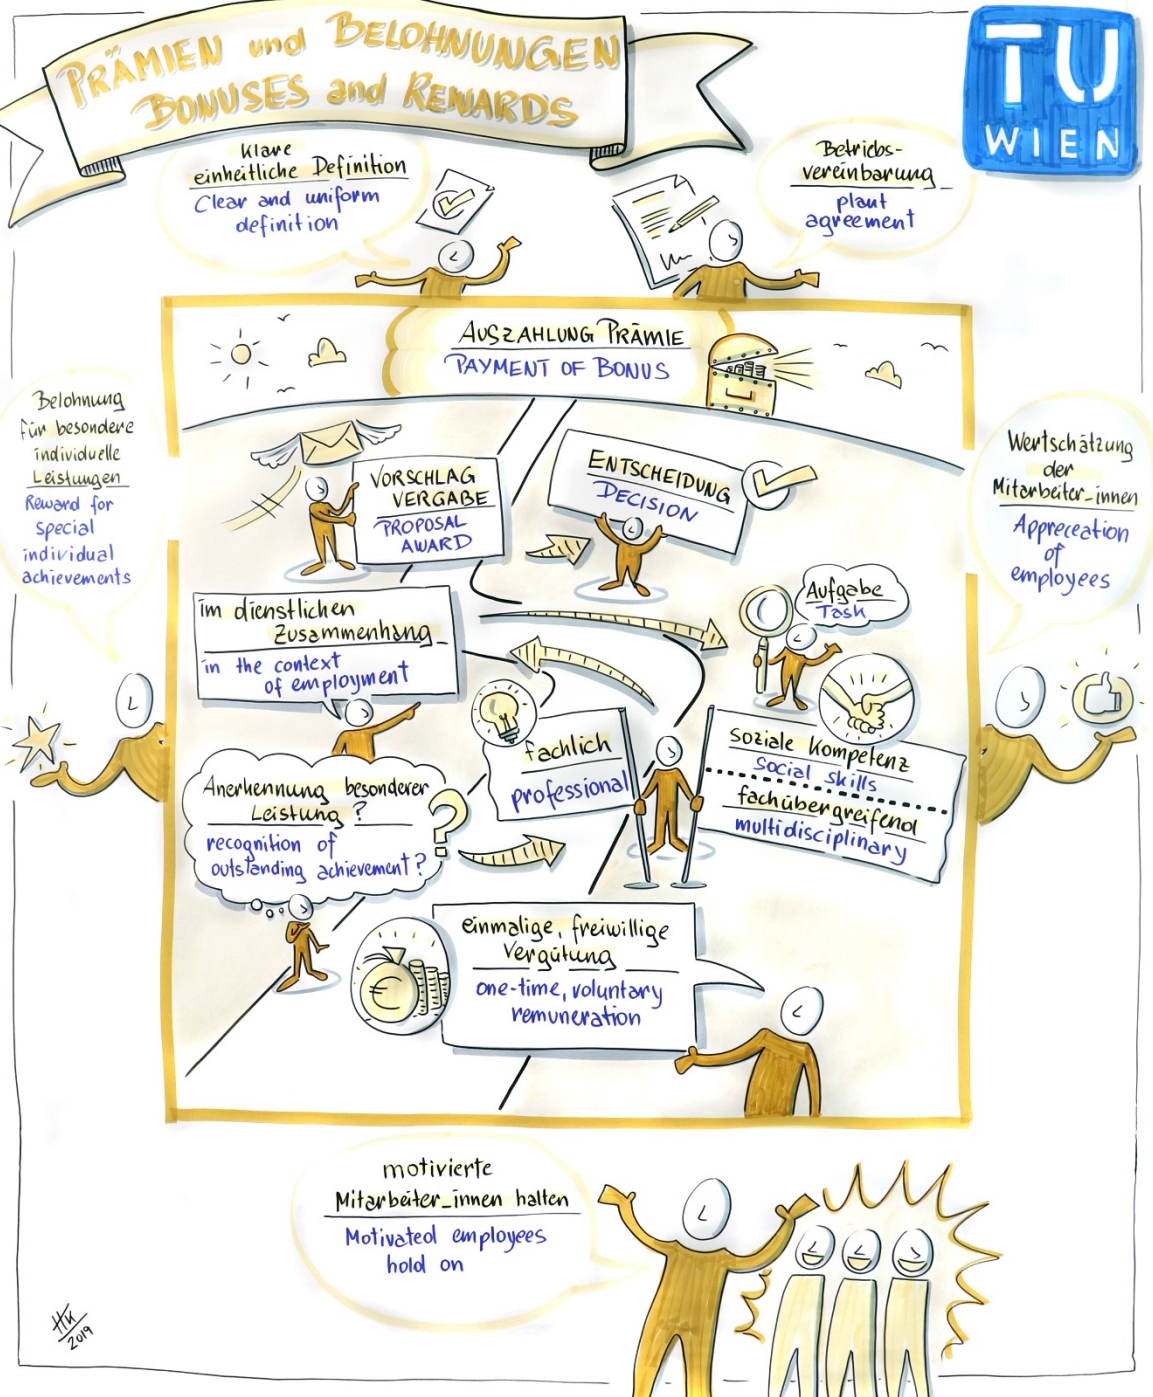 PRÄMIEN und BELOHNUNGEN
BONUSES and REWARDS
TU
WIEN
Klare
einheitliche Definition
Clear and uniform
definition
Betriebs-
vereinbarung
plant
agreement
AUSZAHLUNG PRÄMIE
PAYMENT OF BONUS
Belohnung
für besondere
individuelle
Leistungen
Reward for
special
individual
achievements
Wertschätzung
der
Mitarbeiter_innen
Appreceation
of
employees
VORSCHLAG
VERGABE
PROPOSAL
AWARD
ENTSCHEIDUNG
DECISION
im dienstlichen
Zusammenhang
in the context
of employment
Aufgabe
Task
fachlich
professional
soziale Kompetenz
social skills
fachübergreifend
multidisciplinary
Anerkennung besonderer
Leistung?
recognition of
outstanding achievement?
?
€
einmalige, freiwillige
Vergütung
one-time, voluntary
remuneration
motivierte
Mitarbeiter_innen halten
Motivated employees
hold on
2019